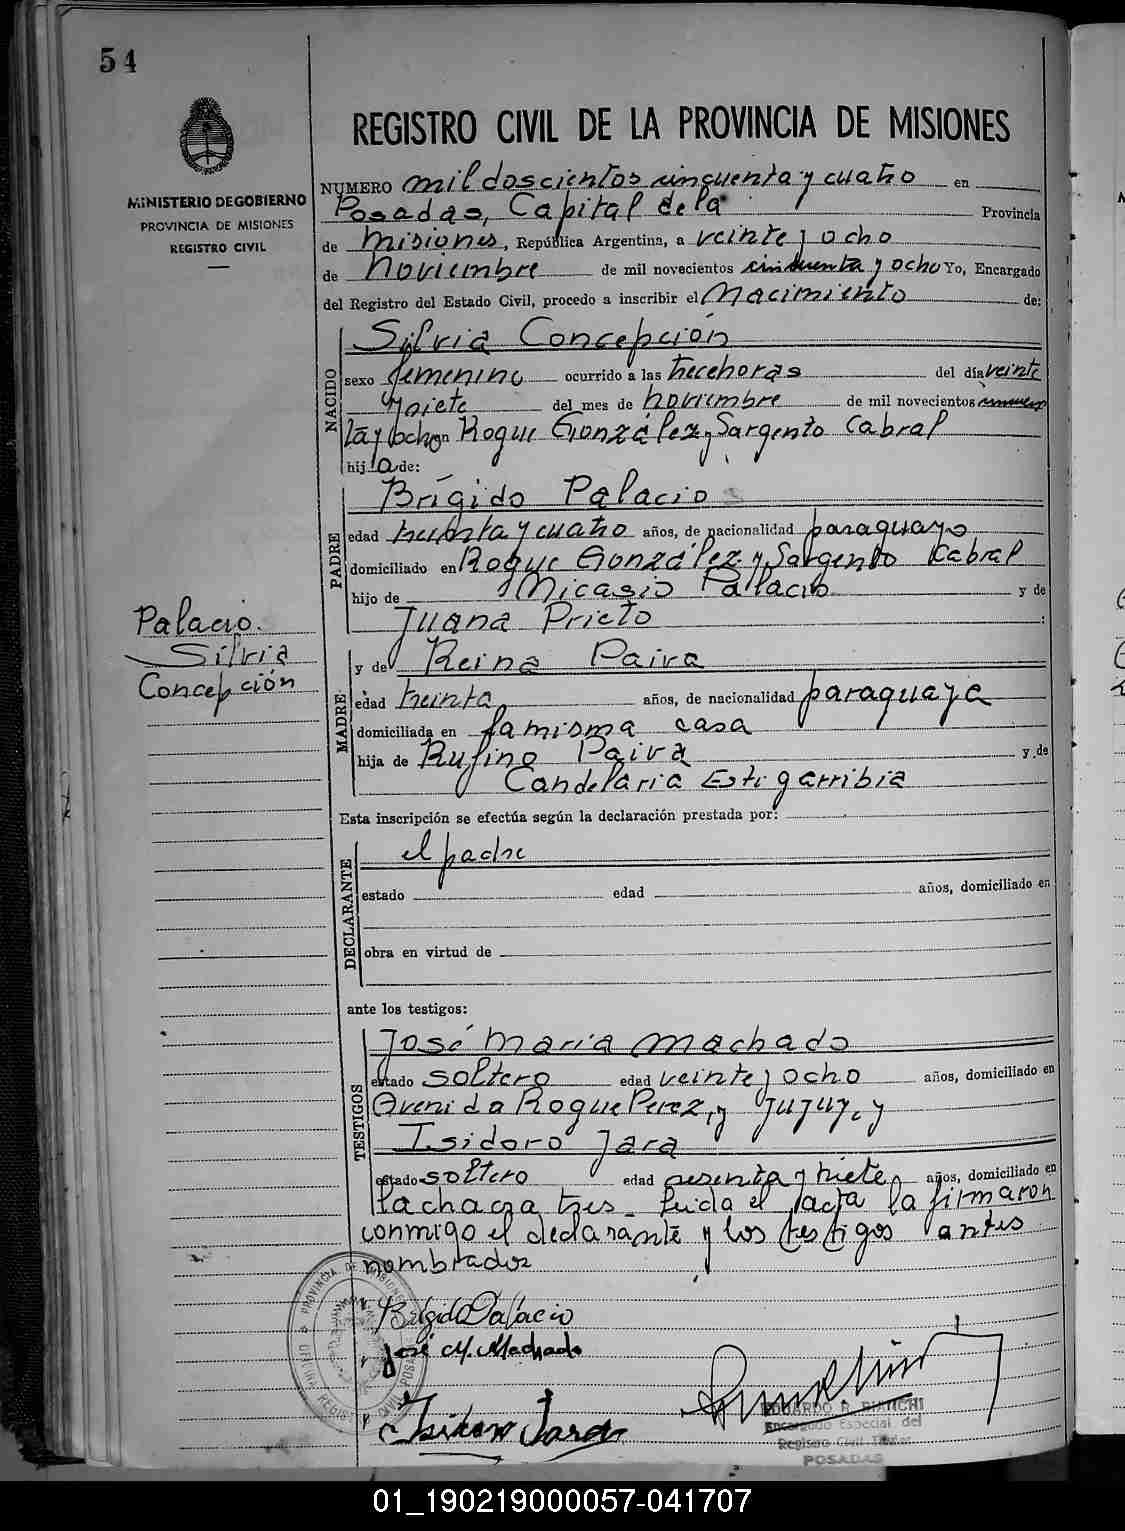 54
MINISTERIO DE GOBIERNO
PROVINCIA DE MISIONES
REGISTRO CIVIL
REGISTRO CIVIL DE LA PROVINCIA DE MISIONES
NUMERO mil doscientos cincuenta y cuatro en
Posadas, Capital de la Provincia
de Misiones, República Argentina, a veinte y ocho
de Noviembre de mil novecientos cincuenta y ocho Yo, Encargado
del Registro del Estado Civil, procedo a inscribir el Nacimiento de:
NACIDO
Silvia Concepción
sexo femenino ocurrido a las trece horas del día veinte
y siete del mes de noviembre de mil novecientos cincuen
ta y ocho en Roque González y Sargento Cabral
hija de:
PADRE
Brígido Palacio
edad treinta y cuatro años, de nacionalidad paraguayo
domiciliado en Roque González y Sargento Cabral
hijo de Nicasio Palacio y de
Juana Prieto
Palacio.
Silvia
Concepción
MADRE
y de Reina Paiva
edad treinta años, de nacionalidad paraguaya
domiciliada en la misma casa
hija de Rufino Paiva y de
Candelaria Estigarribia
Esta inscripción se efectúa según la declaración prestada por:
DECLARANTE
el padre
estado edad años, domiciliado en
obra en virtud de
ante los testigos:
TESTIGOS
José María Machado
estado soltero edad veinte y ocho años, domiciliado en
Avenida Roque Perez, y Jujuy, y
Isidoro Jara
estado soltero edad sesenta y siete años, domiciliado en
la chacra tres_ Leida el acta la firmaron
conmigo el declarante y los testigos antes
nombrados
Brigido Palacio
José M. Machado
Isidoro Jara
PROVINCIA DE MISIONES
OFICINA REGISTRO CIVIL POSADAS
EDUARDO R. BIANCHI
Encargado Especial del
Registro Civil
POSADAS
01_190219000057-041707